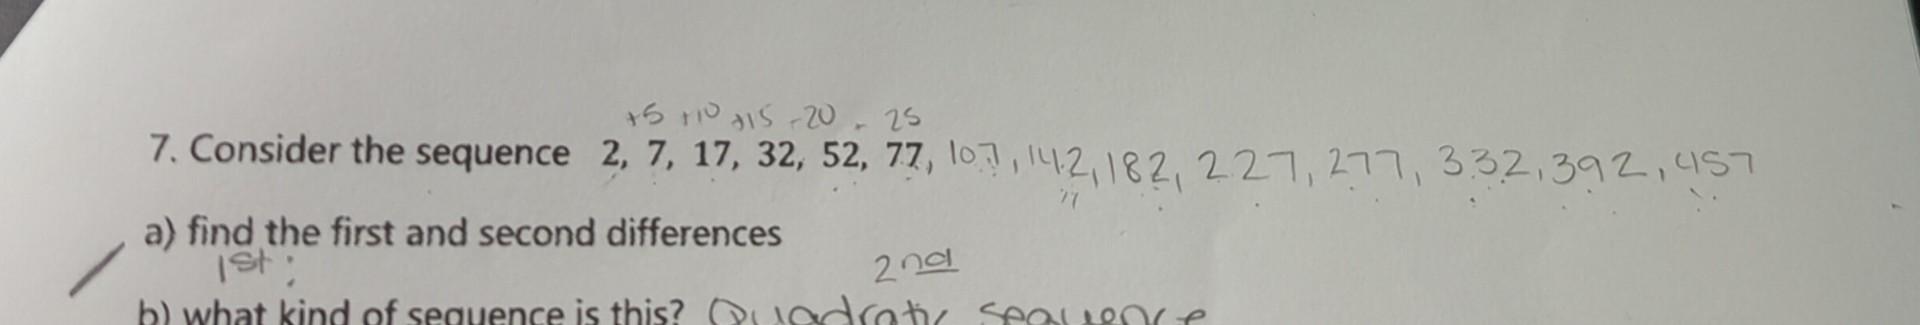 +5 +10 +15 -20 - 25
7. Consider the sequence 2, 7, 17, 32, 52, 77, 107, 142, 182, 227, 277, 332, 392, 457
a) find the first and second differences
1st: 2nd
b) what kind of sequence is this? Quadratic sequence